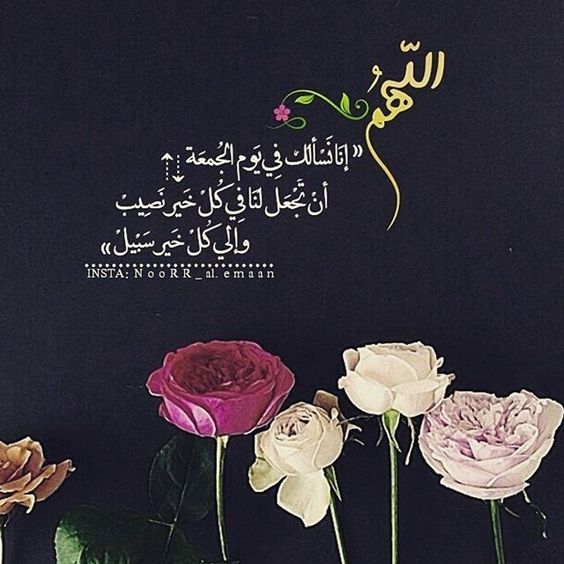 اللّهُم
« إنَا نَسْألك فِي يَوم الجُمعَة
أنْ تَجْعَل لنَا في كُلْ خَير نَصِيبْ
وإلي كُلْ خَير سَبِيلْ »
INSTA: N o o R R _ al. e m a a n